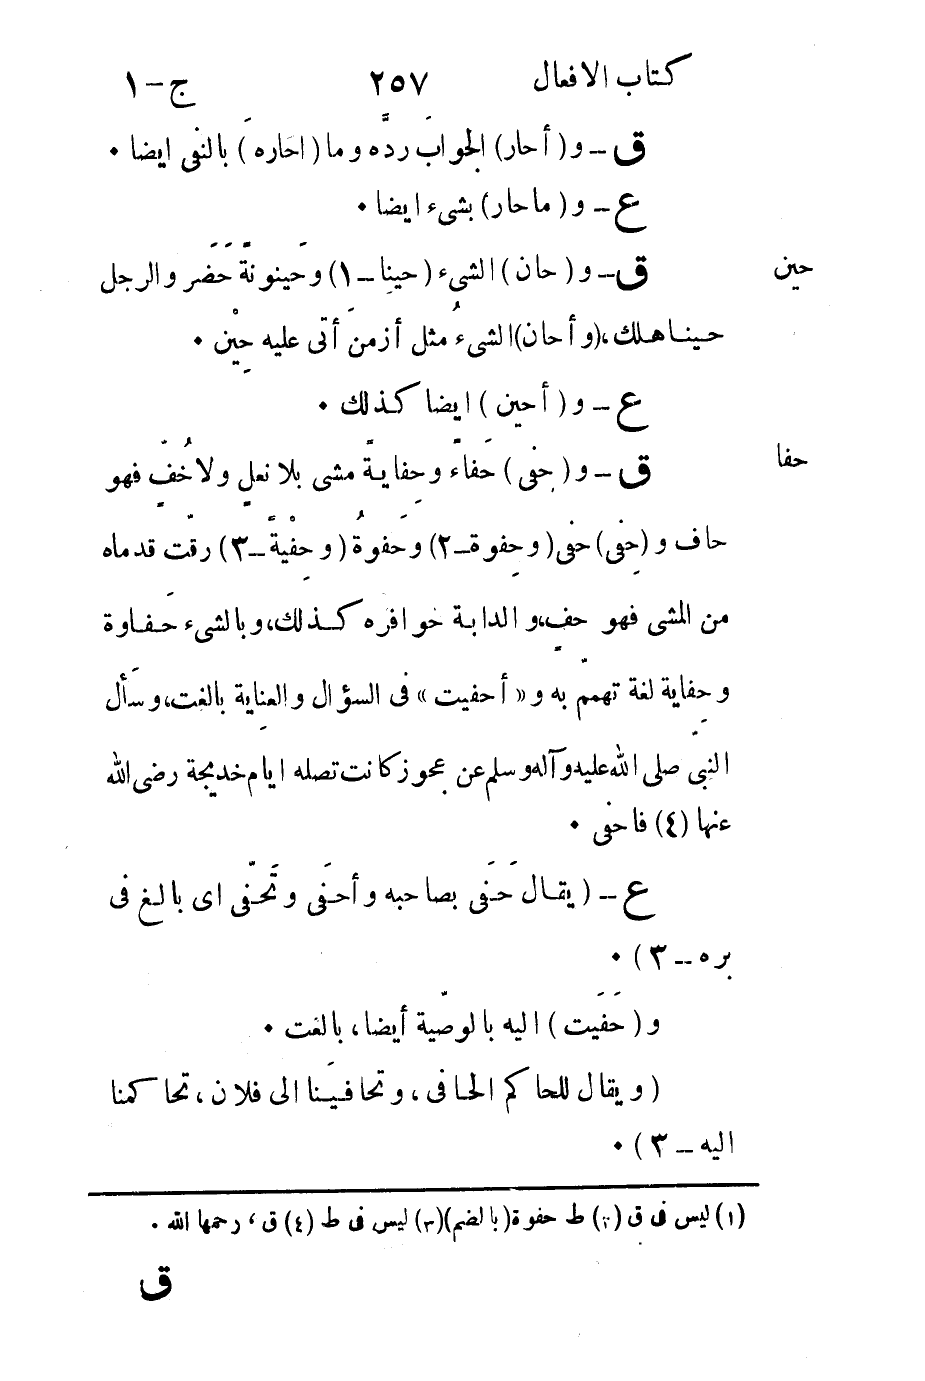 كتاب الافعال ٢٥٧ ج-١
ق - و (أحار) الجوابَ ردَّه وما (احَاره) بالنفى ايضا ٠
ع - و (ماحار) بشىء ايضا ٠
حين ق - و (حان) الشىء (حينِا -١) وحَينونةً حَضَر والرجل
حيناهلك، (و أحان) الشىءُ مثل أزمنَ أتى عليه حِيْن ٠
ع - و (أحين) ايضا كذلك ٠
حفا ق - و (حفى) حَفاءً وحِفايةً مشى بلا نعلٍ ولا خُفٍّ فهو
حاف و (حِفى) حفْى (وحِفوة -٢) وحَفوةُ (وحِفْيةً -٣) رقّت قدماه
من المشى فهو حفٍ، والدابة حوافره كذلك، وبالشىء حَفاوة
وحِفاية لغة تهمّم به و «أحفيت» فى السؤال والعِناية بالغت، وسَأل
النبىّ صلى الله عليه وآله وسلم عن عجوز كانت تصله ايام خديجة رضى الله
عنها (٤) فاحفى ٠
ع - (يقال حَفَى بصاحبه وأحفَى وتَحفّى اى بالغ فى
بره - ٣) ٠
و (حَفَيت) اليه بالوصّية أيضا، بالغت ٠
(ويقال للحاكم الحافى، وتحافيَنا الى فلان، تحاكمنا
اليه - ٣) ٠
(١) ليس فى ق (٢) ط حفوة (بالضم) (٣) ليس فى ط (٤) ق، رحمها الله ٠
ق